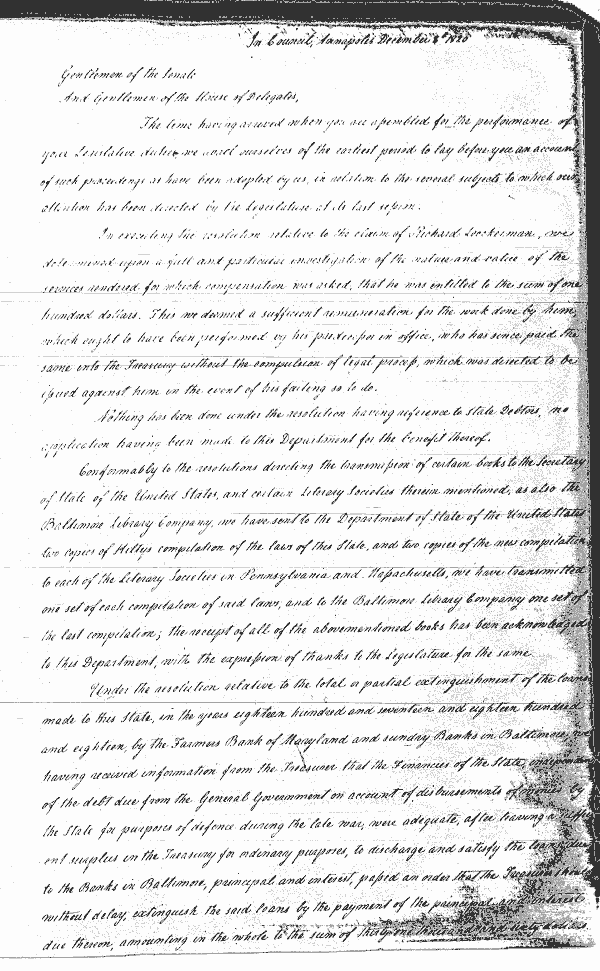 In Council, Annapolis December 1820
Gentlemen of the Senate
And Gentlemen of the House of Delegates,
The time having arrived when you are assembled for the performance of
your Legislative duties, we avail ourselves of the earliest period to lay before you an account
of such proceedings as have been adopted by us, in relation to the several subjects to which our
attention has been directed by the Legislature at its last session.
In executing the resolution relative to the claim of Richard Loockerman, we
determined upon a full and particular investigation of the nature and value of the
services rendered for which compensation was asked, that he was entitled to the sum of one
hundred dollars. This we deemed a sufficient remuneration for the work done by him,
which ought to have been performed by his predecessor in office, who has since paid the
same into the Treasury without the compulsion of legal process, which was directed to be
issued against him in the event of his failing so to do.
Nothing has been done under the resolution having reference to State Debtors, no
application having been made to this Department for the benefit thereof.
Conformably to the resolutions directing the transmission of certain books to the Secretary
of State of the United States, and certain Literary Societies therein mentioned, as also the
Baltimore Library Company, we have sent to the Department of State of the United States
two copies of Kiltys compilation of the laws of this State, and two copies of the new compilation
to each of the Literary Societies in Pennsylvania and Massachusetts, we have transmitted
one set of each compilation of said laws, and to the Baltimore Library Company one set of
the last compilation; the receipt of all of the abovementioned books has been acknowledged
to this Department, with the expression of thanks to the Legislature for the same.
Under the resolution relative to the total or partial extinguishment of the loans
made to this State, in the years eighteen hundred and seventeen and eighteen hundred
and eighteen, by the Farmers Bank of Maryland and sundry Banks in Baltimore, we
having received information from the Treasurer that the Finances of the State, independent
of the debt due from the General Government on account of disbursements of monies by
the State for purposes of defence during the late war, were adequate, after leaving a suffici
ent surplus in the Treasury for ordinary purposes, to discharge and satisfy the loans due
to the Banks in Baltimore, principal and interest, passed an order that the Treasurer should
without delay, extinguish the said loans by the payment of the principal and interest
due thereon, amounting in the whole to the sum of thirty one thousand and sixty dollars